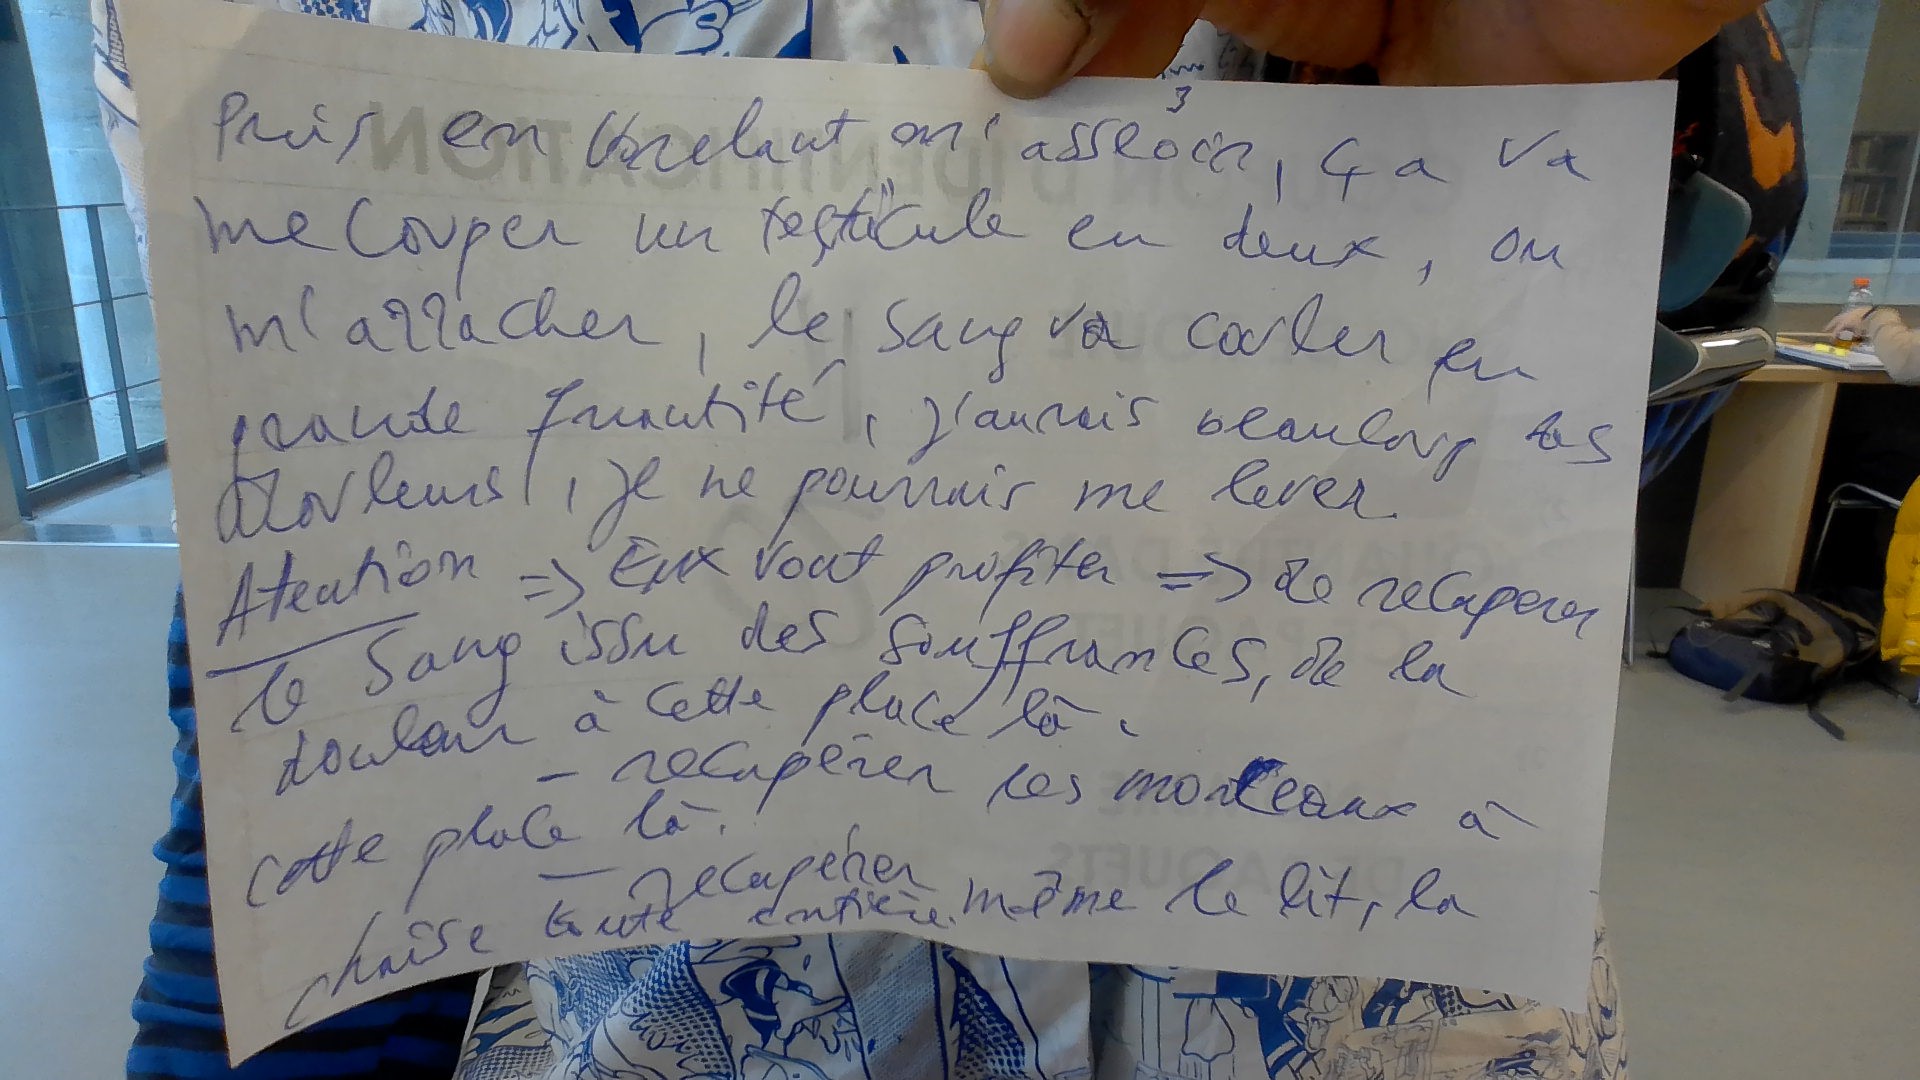 3
Puis en voulant m'asseoir, ça va
me couper un testicule en deux, ou
m'arracher, le sang va couler en
grande quantité, j'aurais beaucoup des
douleurs, je ne pourrais me lever.
Atention => Eux vont profiter => De recuperer
le sang issu des souffrances, de la
douleur à cette place là.
- recupérer les morceaux à
cette place là.
- recupérer même le lit, la
chaise toute entière.